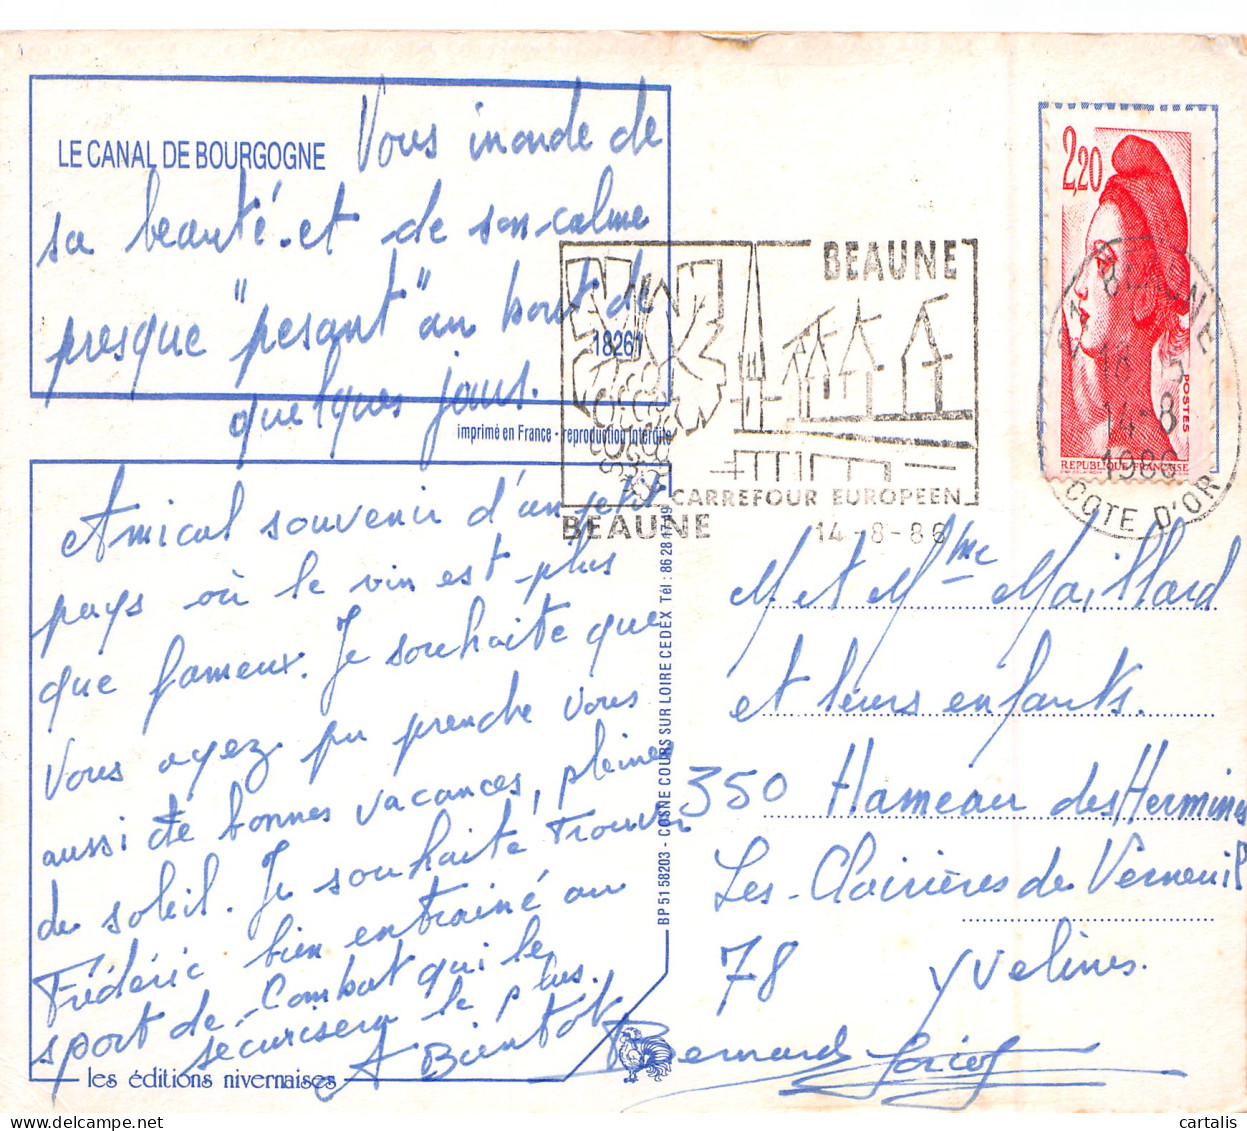 LE CANAL DE BOURGOGNE
Vous inonde de
sa beauté et de son calme
presque "pesant" au bout de
quelques jours.
18261
imprimé en France - reproduction interdite
Amical souvenir d'un petit
pays où le vin est plus
que fameux. Je souhaite que
Vous ayez pu prendre vous
aussi de bonnes vacances, pleines
de soleil. Je souhaite trouver
Frédéric bien entrainé au
sport de combat qui le
sécurisera le plus.
A Bientôt
Bernard
les éditions nivernaises
BP 51 58203 - COSNE COURS SUR LOIRE CEDEX Tél : 86 28 17 19
BEAUNE
CARREFOUR EUROPEEN
BEAUNE 14-8-86
2,20
POSTES
REPUBLIQUE FRANÇAISE
21 BEAUNE
16
14-8
1986
COTE D'OR
M. et Mme Maillard
et leurs enfants.
350 Hameau des Hermines
Les Clairières de Verneuil
78 Yvelines.
cartalis